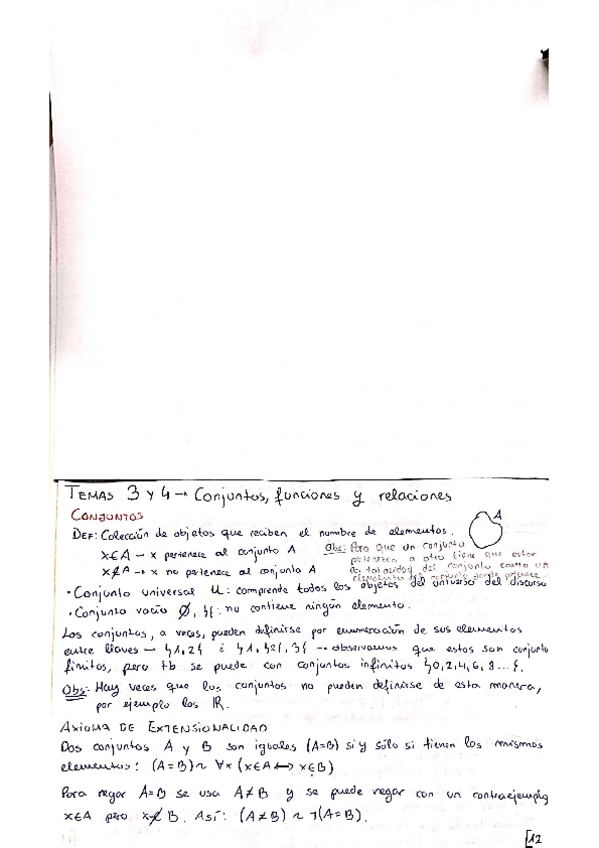 TEMAS 3 Y 4 → Conjuntos, funciones y relaciones
CONJUNTOS
DEF: Colección de objetos que reciben el nombre de elementos. A
x∈A → x pertenece al conjunto A
x∉A → x no pertenece al conjunto A
Obs: Para que un conjunto
pertenezca a otro tiene que estar
la totalidad del conjunto como un
elemento del conjunto donde pertenece
· Conjunto universal U: comprende todos los objetos del universo del discurso
· Conjunto vacío ∅, {}: no contiene ningún elemento.
Los conjuntos, a veces, pueden definirse por enumeración de sus elementos
entre llaves → {1,2} ó {1,{2},3} → observamos que estos son conjuntos
finitos, pero tb se puede con conjuntos infinitos {0,2,4,6,8...}.
Obs: Hay veces que los conjuntos no pueden definirse de esta manera,
por ejemplo los ℝ.
AXIOMA DE EXTENSIONALIDAD
Dos conjuntos A y B son iguales (A=B) si y sólo si tienen los mismos
elementos: (A=B) ~ ∀x (x∈A ↔ x∈B)
Para negar A=B se usa A≠B y se puede negar con un contraejemplo
x∈A pero x∉B. Así: (A≠B) ~ ¬(A=B).
12